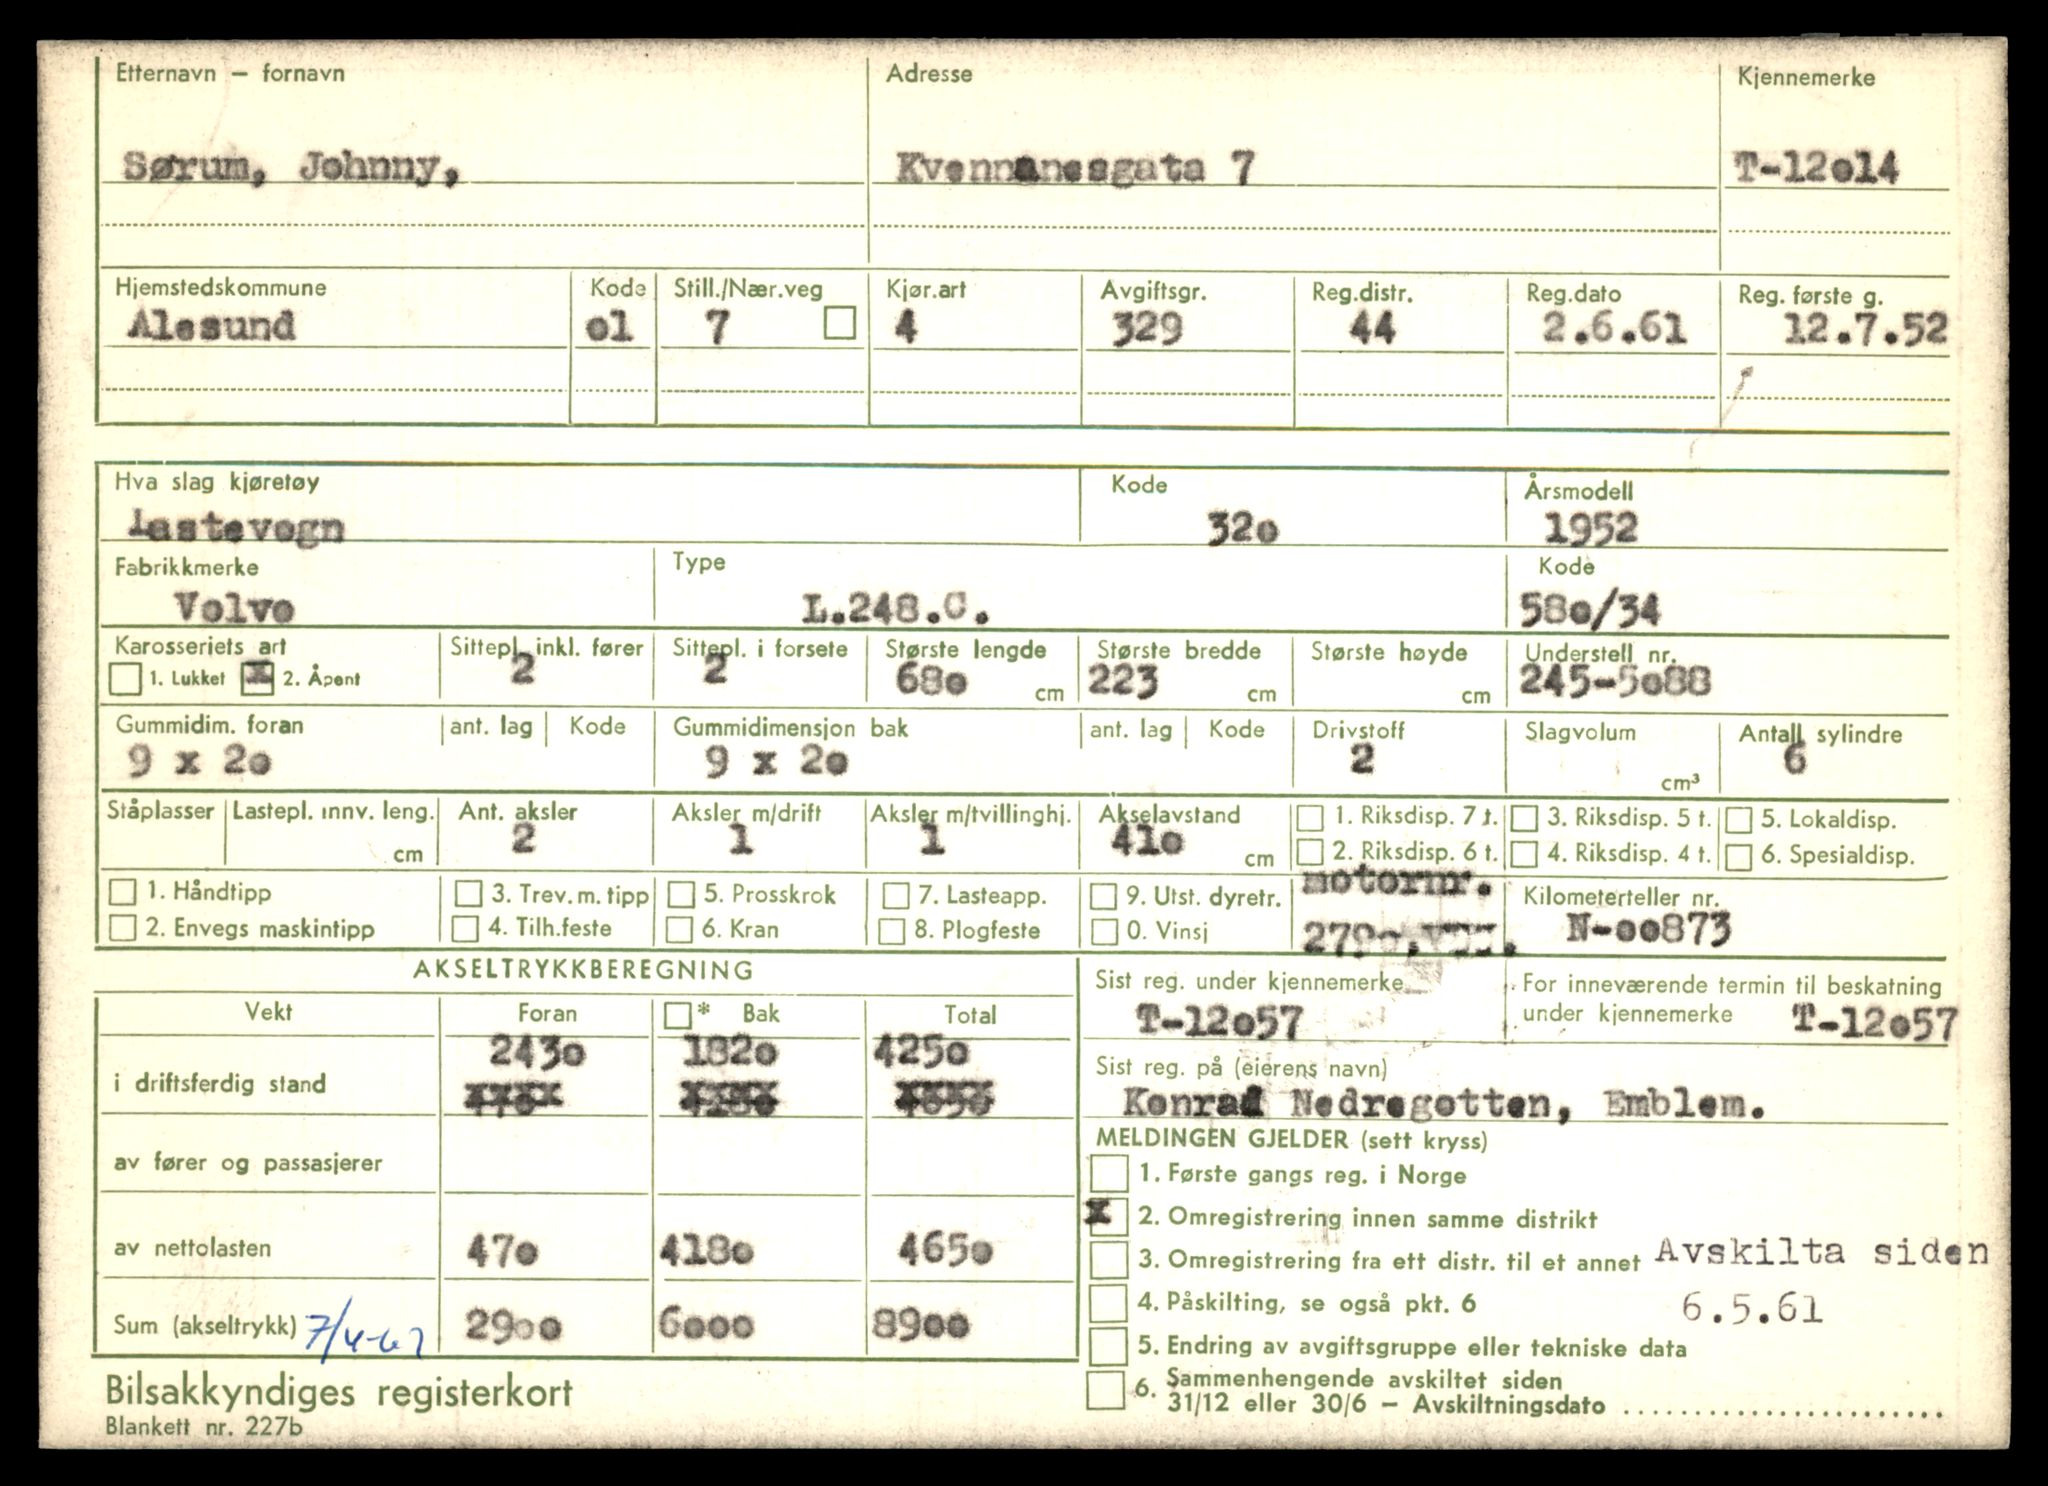 Etternavn – fornavn Adresse Kjennemerke
Sørum, Johnny, Kvennanesgata 7 T-12014
Hjemstedskommune Kode Still./Nær.veg Kjør.art Avgiftsgr. Reg.distr. Reg.dato Reg. første g.
Alesund 01 7 4 329 44 2.6.61 12.7.52
Hva slag kjøretøy Kode Årsmodell
Lastevogn 320 1952
Fabrikkmerke Type Kode
Volvo L.248.C. 580/34
Karosseriets art Sittepl. inkl. fører Sittepl. i forsete Største lengde Største bredde Største høyde Understell nr.
1. Lukket x 2. Åpent 2 2 680 cm 223 cm cm 245-5088
Gummidim. foran ant. lag Kode Gummidimensjon bak ant. lag Kode Drivstoff Slagvolum Antall sylindre
9 x 20 9 x 20 2 cm³ 6
Ståplasser Lastepl. innv. leng. Ant. aksler Aksler m/drift Aksler m/tvillinghj. Akselavstand 1. Riksdisp. 7 t. 3. Riksdisp. 5 t. 5. Lokaldisp.
cm 2 1 1 410 cm 2. Riksdisp. 6 t. 4. Riksdisp. 4 t. 6. Spesialdisp.
1. Håndtipp 3. Trev. m. tipp 5. Prosskrok 7. Lasteapp. 9. Utst. dyretr. motornr. Kilometerteller nr.
2. Envegs maskintipp 4. Tilh.feste 6. Kran 8. Plogfeste 0. Vinsj N-00873
AKSELTRYKKBEREGNING Sist reg. under kjennemerke For inneværende termin til beskatning
Vekt Foran * Bak Total T-12057 under kjennemerke T-12057
2430 1820 4250
i driftsferdig stand Sist reg. på (eierens navn)
Konrad Nedregotten, Emblem.
av fører og passasjerer MELDINGEN GJELDER (sett kryss)
1. Første gangs reg. i Norge
x 2. Omregistrering innen samme distrikt
av nettolasten 470 4180 4650 3. Omregistrering fra ett distr. til et annet Avskilta siden
Sum (akseltrykk) 7/4-67 2900 6000 8900 4. Påskilting, se også pkt. 6 6.5.61
5. Endring av avgiftsgruppe eller tekniske data
Bilsakkyndiges registerkort 6. Sammenhengende avskiltet siden
Blankett nr. 227b 31/12 eller 30/6 – Avskiltningsdato